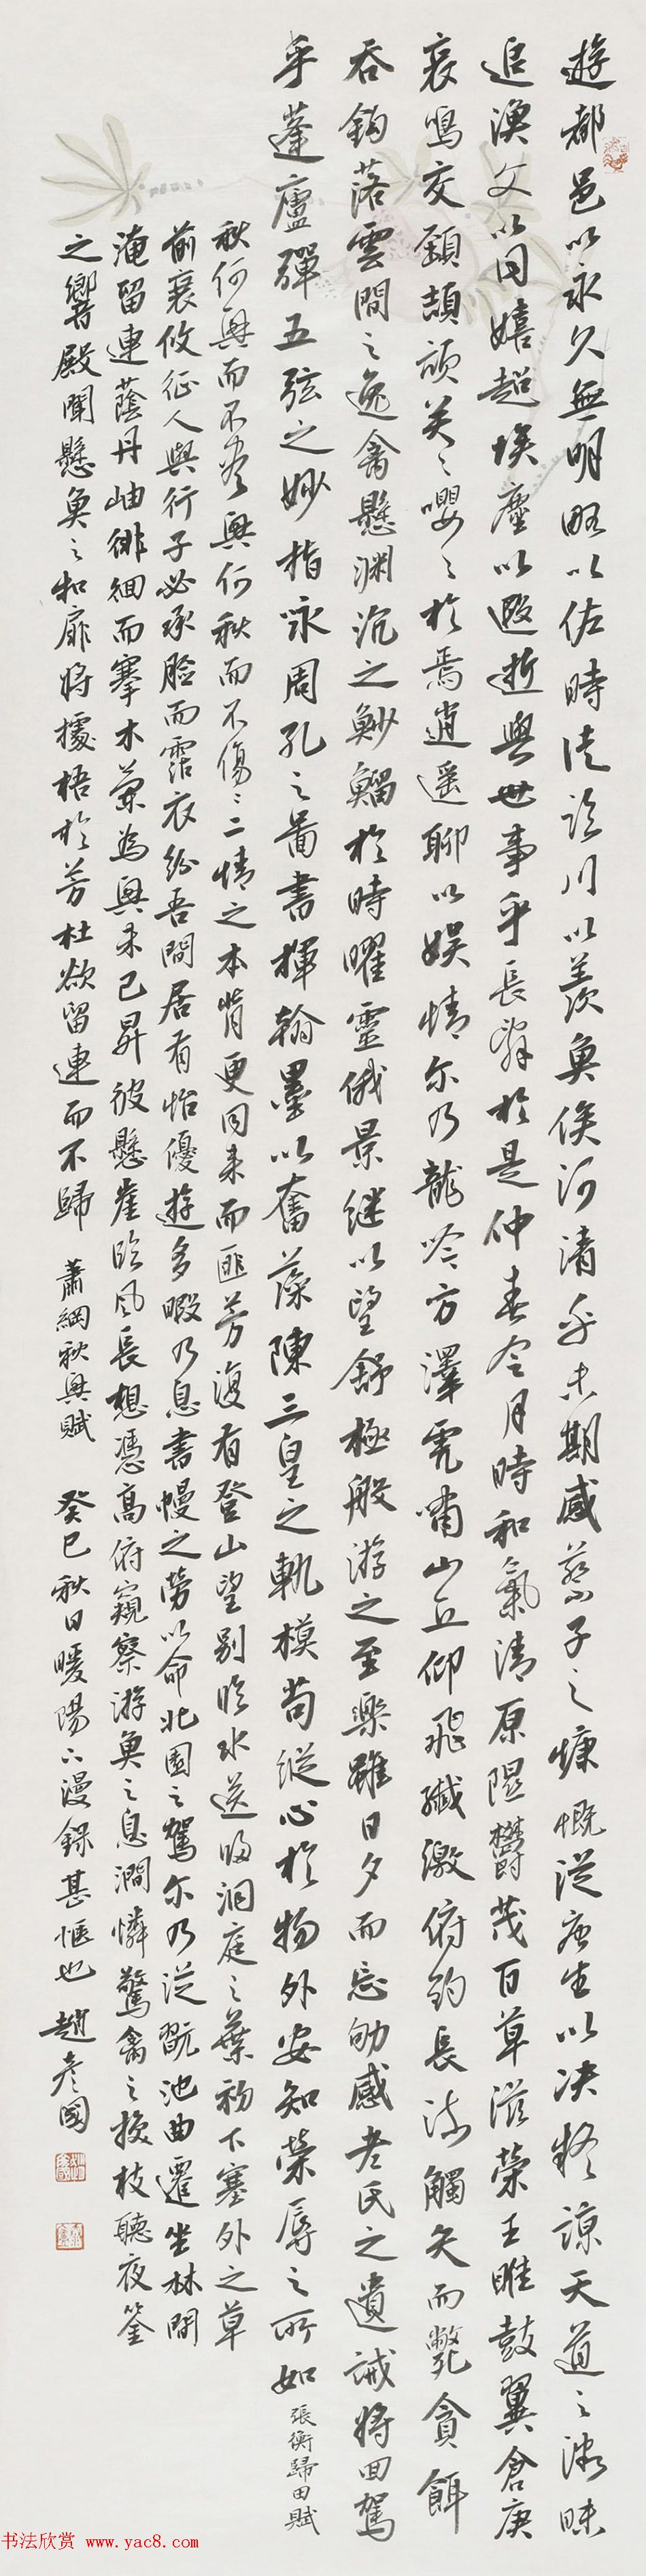 遊都邑以永久無明略以佐時徒臨川以羨魚俟河清乎未期感蔡子之慷慨從唐生以决疑諒天道之微昧
追漁父以同嬉超埃塵以遐逝與世事乎長辭於是仲春令月時和氣清原隰鬱茂百草滋榮王雎鼓翼倉庚
哀鳴交頸頡頏关〻嚶〻於焉逍遥聊以娱情尔乃龍吟方澤虎嘯山丘仰飛纖繳俯釣長流觸矢而斃貪餌
吞鈎落雲間之逸禽懸淵沉之魦鰡於時曜靈俄景継以望舒極般游之至樂雖日夕而忘劬感老氏之遺誡將回駕
乎蓬廬彈五弦之妙指咏周孔之圖書揮翰墨以奮藻陳三皇之軌模苟縱心於物外安知榮辱之所如 張衡歸田賦
秋何興而不盡興何秋而不傷〻二情之本背更同来而匪芳復有登山望别臨水送歸洞庭之葉初下塞外之草
前衰攸征人與行子必承臉而霑衣紛吾閒居有怡優遊多暇乃息書幌之勞以命北園之駕尔乃從翫池曲遷坐林間
淹留連蔭丹岫徘徊而搴木蘭為興未已昇彼懸崖臨风長想憑高俯窺察游魚之息澗憐驚禽之换枝聽夜籥
之響殿聞懸魚之扣扉將據梧於芳杜欲留連而不歸 蕭綱秋興賦 癸巳秋日暖陽下漫錄甚愜也 趙彦國
书法欣赏 www.yac8.com